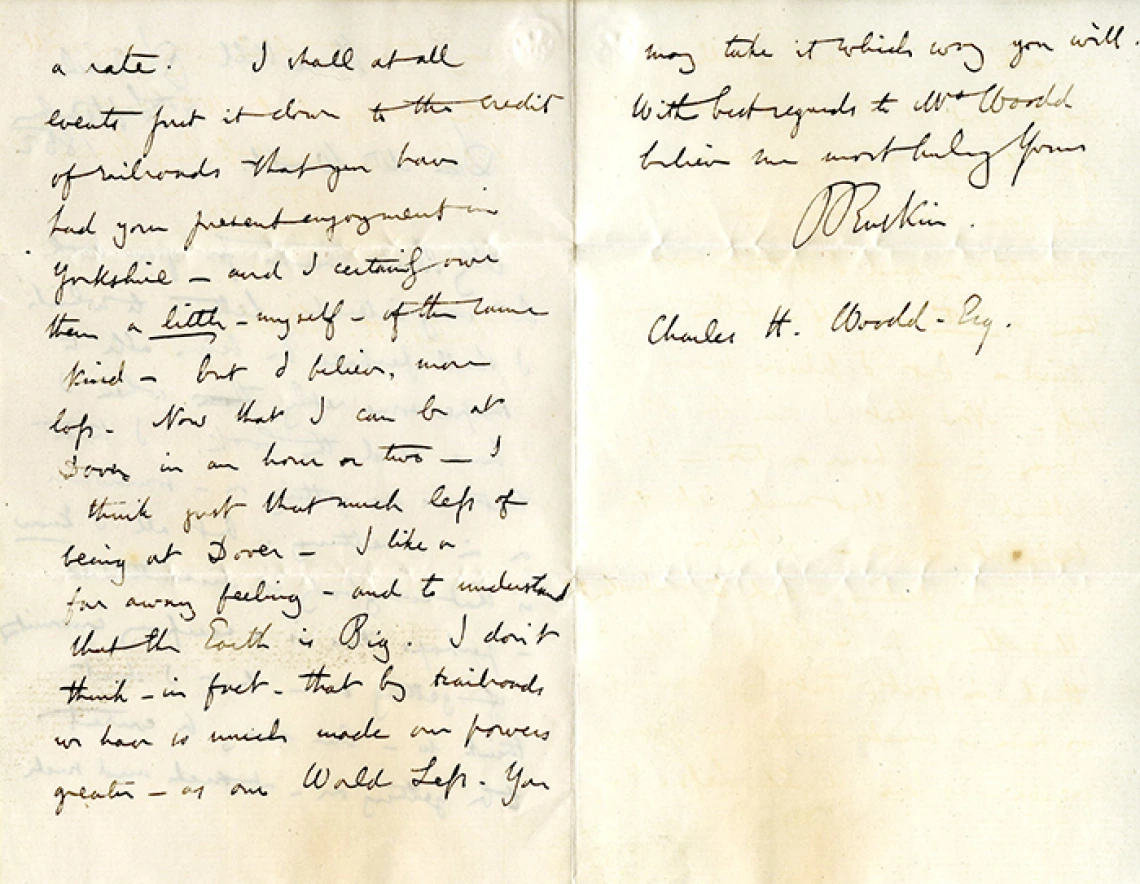 a rate. I shall at all
events put it down to the credit
of railroads that you have
had your present enjoyment in
Yorkshire – and I certainly owe
them a little – myself – of the same
kind – but I believe, more
loss. Now that I can be at
Dover in an hour or two – I
think just that much less of
being at Dover – I like a
far away feeling – and to understand
that the Earth is Big. I don't
think – in fact – that by railroads
we have so much made our powers
greater – as our World Less – You
may take it which way you will.
With best regards to Mrs Woodd
believe me most truly Yours
J Ruskin.
Charles H. Woodd – Esq.